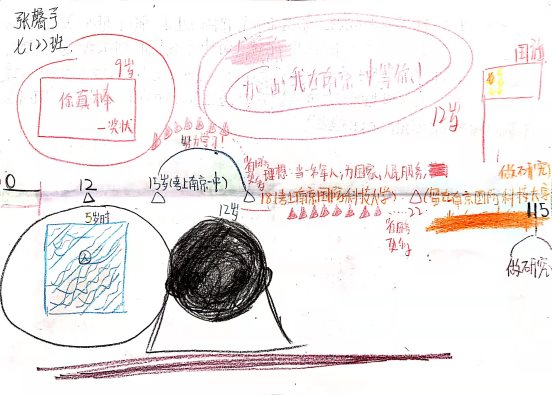 张馨予
七(2)班
9岁
你真棒
一奖状
努力学习
加油!我在南京一中等你!
12岁
国旗
理想:当一名军人,为国家、人民服务
做研究
0
12
15岁(考上南京一中)
18(考上南京国防科技大学)
(留在南京国防科技大学
12岁
……22
115
5岁时
做研究